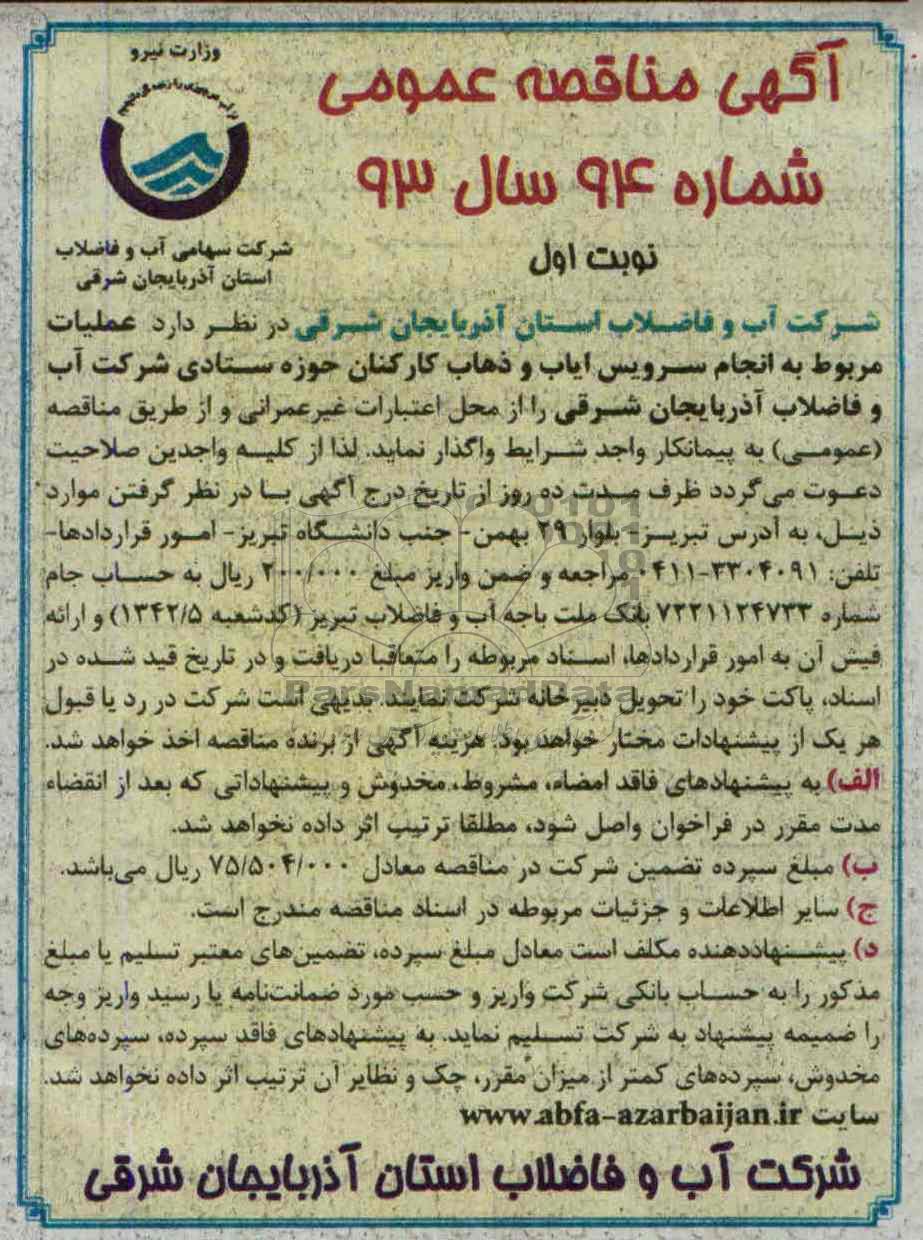 وزارت نیرو
آگهی مناقصه عمومی
شماره ۹۴ سال ۹۳
نوبت اول
شرکت سهامی آب و فاضلاب
استان آذربایجان شرقی
شرکت آب و فاضلاب استان آذربایجان شرقی در نظر دارد عملیات
مربوط به انجام سرویس ایاب و ذهاب کارکنان حوزه ستادی شرکت آب
و فاضلاب آذربایجان شرقی را از محل اعتبارات غیرعمرانی و از طریق مناقصه
(عمومی) به پیمانکار واجد شرایط واگذار نماید. لذا از کلیه واجدین صلاحیت
دعوت می‌گردد ظرف مدت ده روز از تاریخ درج آگهی با در نظر گرفتن موارد
ذیل، به آدرس تبریز- بلوار ۲۹ بهمن- جنب دانشگاه تبریز- امور قراردادها-
تلفن: ۳۳۰۴۰۹۱-۰۴۱۱ مراجعه و ضمن واریز مبلغ ۲۰۰/۰۰۰ ریال به حساب جام
شماره ۷۲۲۱۱۲۴۷۳۳ بانک ملت باجه آب و فاضلاب تبریز (کدشعبه ۱۳۴۲/۵) و ارائه
فیش آن به امور قراردادها، اسناد مربوطه را متعاقبا دریافت و در تاریخ قید شده در
اسناد، پاکت خود را تحویل دبیرخانه شرکت نمایند. بدیهی است شرکت در رد یا قبول
هر یک از پیشنهادات مختار خواهد بود. هزینه آگهی از برنده مناقصه اخذ خواهد شد.
الف) به پیشنهادهای فاقد امضاء، مشروط، مخدوش و پیشنهاداتی که بعد از انقضاء
مدت مقرر در فراخوان واصل شود، مطلقا ترتیب اثر داده نخواهد شد.
ب) مبلغ سپرده تضمین شرکت در مناقصه معادل ۷۵/۵۰۴/۰۰۰ ریال می‌باشد.
ج) سایر اطلاعات و جزئیات مربوطه در اسناد مناقصه مندرج است.
د) پیشنهاددهنده مکلف است معادل مبلغ سپرده، تضمین‌های معتبر تسلیم یا مبلغ
مذکور را به حساب بانکی شرکت واریز و حسب مورد ضمانت‌نامه یا رسید واریز وجه
را ضمیمه پیشنهاد به شرکت تسلیم نماید. به پیشنهادهای فاقد سپرده، سپرده‌های
مخدوش، سپرده‌های کمتر از میزان مقرر، چک و نظایر آن ترتیب اثر داده نخواهد شد.
سایت www.abfa-azarbaijan.ir
شرکت آب و فاضلاب استان آذربایجان شرقی
ParsNamadData